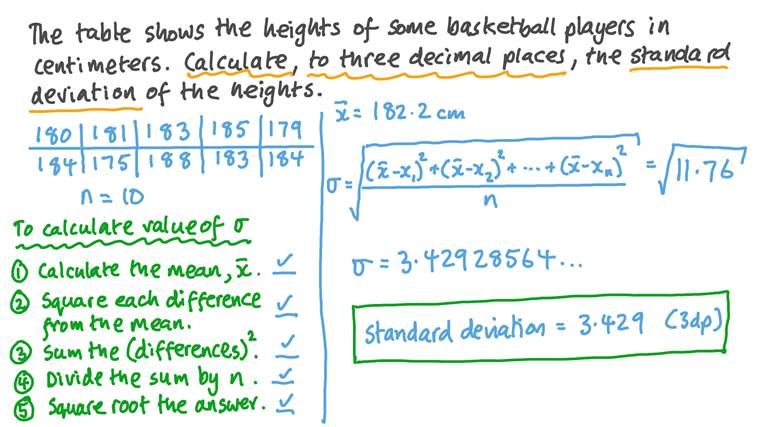 The table shows the heights of some basketball players in
centimeters. Calculate, to three decimal places, the standard
deviation of the heights.
180 | 181 | 183 | 185 | 179
184 | 175 | 188 | 183 | 184
n = 10
To calculate value of σ
① Calculate the mean, x̄. ✓
② Square each difference
from the mean. ✓
③ Sum the (differences)². ✓
④ Divide the sum by n. ✓
⑤ Square root the answer. ✓
x̄ = 182.2 cm
σ = √((x̄-x₁)²+(x̄-x₂)²+ ··· +(x̄-xₙ)² / n) = √11.76
σ = 3.42928564...
Standard deviation = 3.429 (3dp)